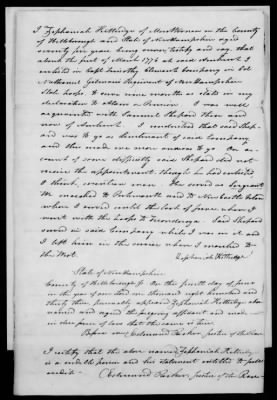 I Zephaniah Kittredge of Mont Vernon in the County
of Hillsborough and State of New Hampshire aged
seventy six years being sworn, testify and say, that
about the first of March 1776 at said Amherst I
enlisted in Capt Timothy Company in Col
Nathaniel Regiment of New Hampshire
State troops, to serve nine months as stated in my
declaration to obtain a Pension. I was well
acquainted with Samuel Shepard then and
now of Amherst. I understood that said Shep-
ard was to go as lieutenant of said Company
and this made me more anxious to go. On ac-
count of some difficulty said Shepard did not
receive the appointment though he had enlisted
I think, men. He served as Sergeant
We marched to Portsmouth and to New Castle Island
where I served until the last of June when I
went with the troops to Ticonderoga. Said Shepard
served in said Company while I was in it and
I left him in the service when I marched to
the West.
Zephaniah Kittredge
State of New Hampshire
County of Hillsborough ss On the fourth day of June
in the year of our Lord one thousand eight hundred and
thirty three personally appeared Zephaniah Kittredge above
named and signed the foregoing affidavit and made
in due form of law that the same is true.
Before me, Justice of the Peace
I certify that the above named Zephaniah Kittredge
is a credible person and his statement entitled to full
credit. Justice of the Peace